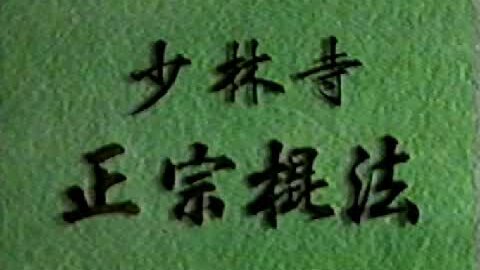 少林寺
正宗棍法